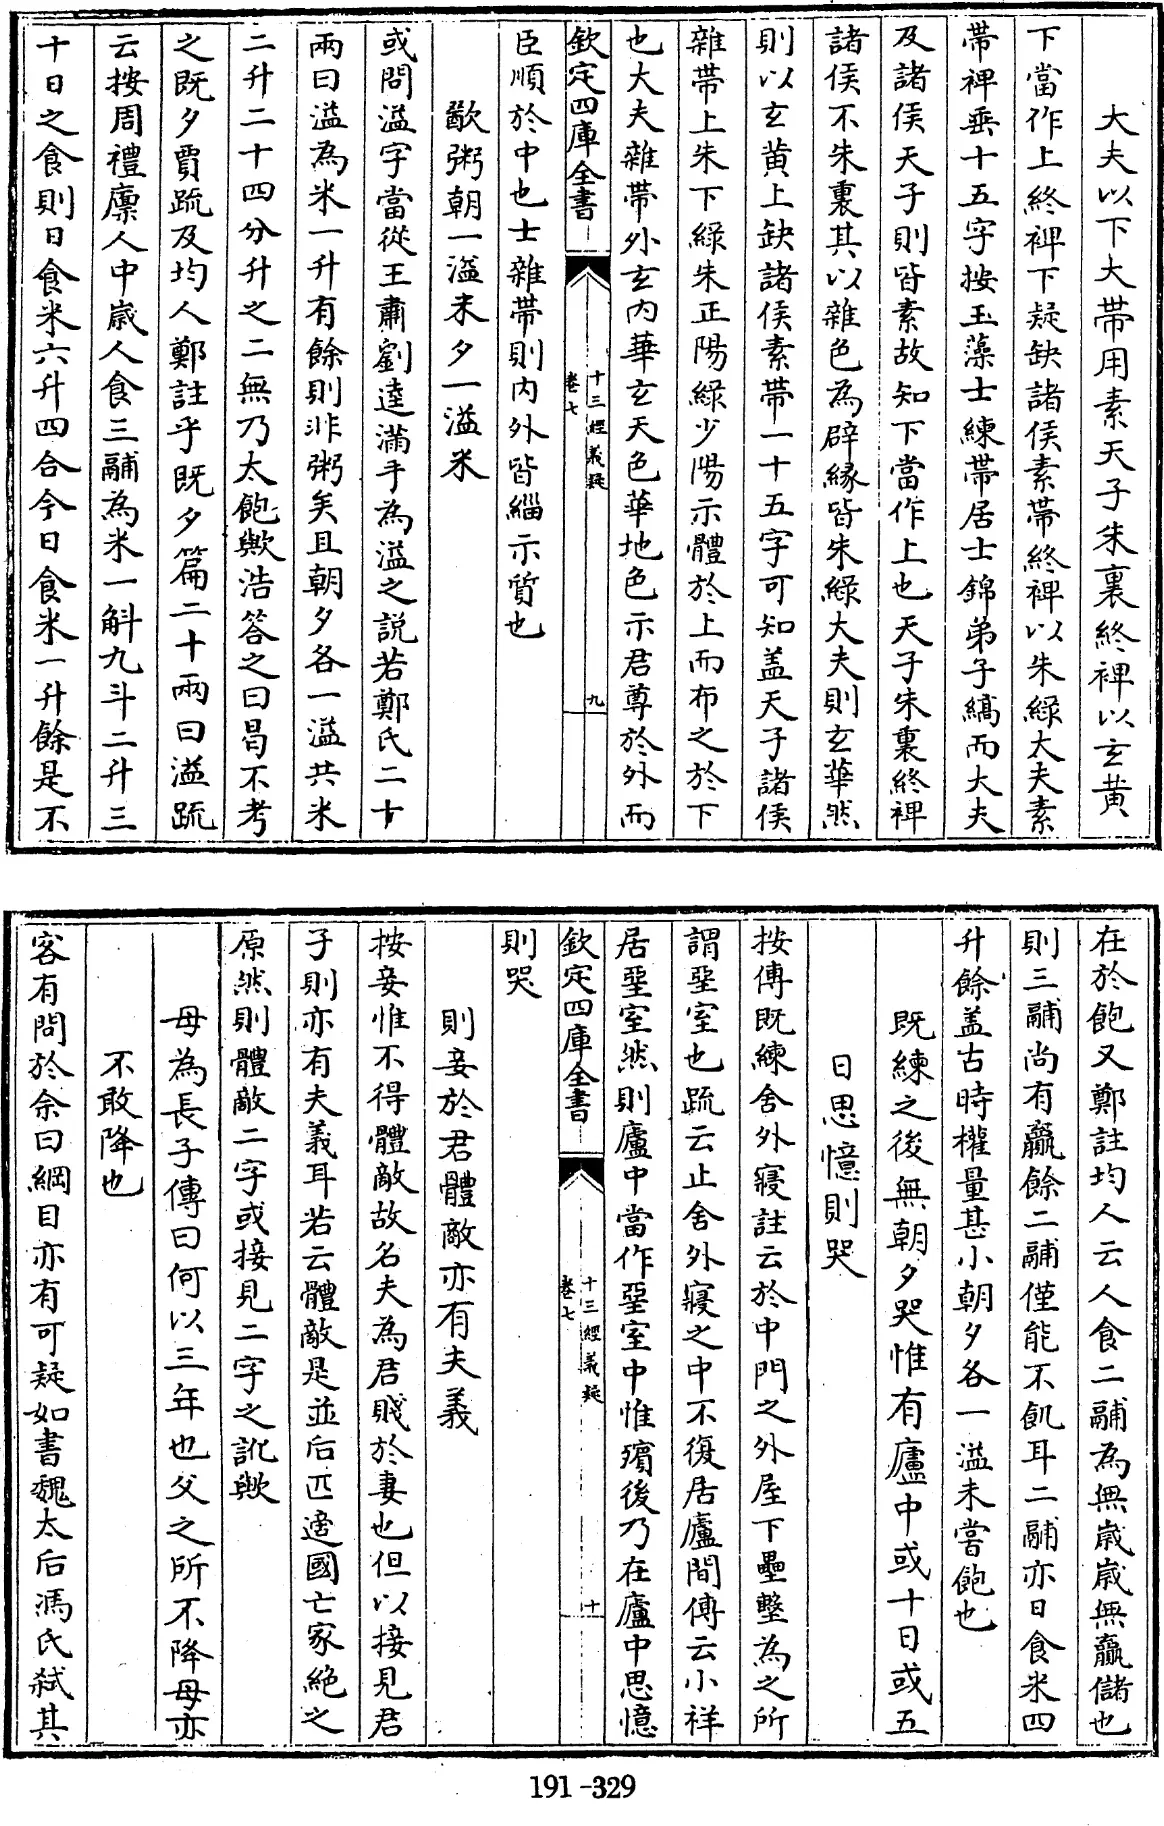 大夫以下大帶用素天子朱裏終裨以玄黄
下當作上終裨下疑缺諸侯素帶終裨以朱綠大夫素
帶裨垂十五字按玉藻士練帶居士錦弟子縞而大夫
及諸侯天子則皆素故知下當作上也天子朱裏終裨
諸侯不朱裏其以雜色為辟緣皆朱綠大夫則玄華然
則以玄黄上缺諸侯素帶一十五字可知盖天子諸侯
雜帶上朱下綠朱正陽綠少陽示體於上而布之於下
也大夫雜帶外玄内華玄天色華地色示君尊於外而
欽定四庫全書
十三經義疑
卷七
九
臣順於中也士雜帶則内外皆緇示質也
歠粥朝一溢米夕一溢米
或問溢字當從王肅劉逵滿手為溢之説若鄭氏二十
兩曰溢為米一升有餘則非粥矣且朝夕各一溢共米
二升二十四分升之二無乃太飽歟浩答之曰曷不考
之既夕賈疏及均人鄭註乎既夕篇二十兩曰溢疏
云按周禮廩人中嵗人食三鬴為米一斛九斗二升三
十日之食則日食米六升四合今日食米一升餘是不
在於飽又鄭註均人云人食二鬴為無嵗嵗無贏儲也
則三鬴尚有贏餘二鬴僅能不飢耳二鬴亦日食米四
升餘盖古時權量甚小朝夕各一溢未嘗飽也
既練之後無朝夕哭惟有廬中或十日或五
日思憶則哭
按傳既練舍外寢註云於中門之外屋下壘墼為之所
謂堊室也疏云止舍外寢之中不復居廬間傳云小祥
居堊室然則廬中當作堊室中惟殯後乃在廬中思憶
欽定四庫全書
十三經義疑
卷七
十
則哭
則妾於君體敵亦有夫義
按妾惟不得體敵故名夫為君賤於妻也但以接見君
子則亦有夫義耳若云體敵是並后匹適國亡家絶之
原然則體敵二字或接見二字之訛歟
母為長子傳曰何以三年也父之所不降母亦
不敢降也
客有問於余曰綱目亦有可疑如書魏太后馮氏弑其
191-329